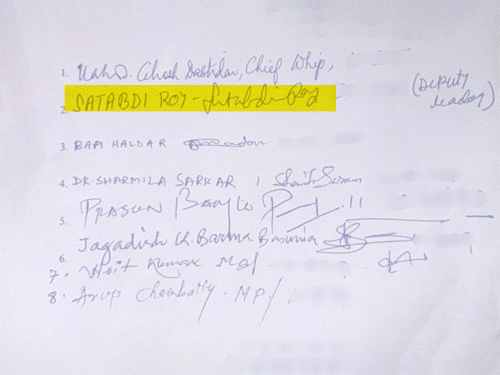 1. Kakoli Ghosh Dastidar, Chief Whip,
2. SATABDI ROY - Satabdi Roy
(Deputy leader)
3. BAPI HALDAR
4. DR. SHARMILA SARKAR
5. PRASUN
6. Jagadish Ch. Barma Basunia
7. Kumar
8. Arup Chakraborty. MP/